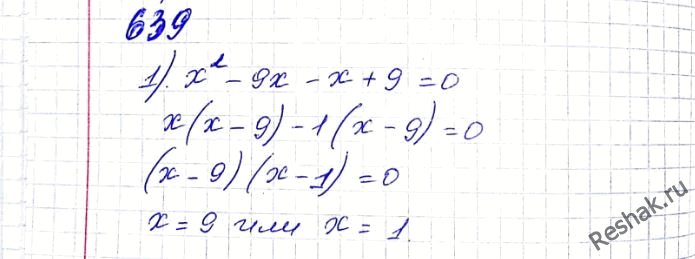 639
1). x² - 9x - x + 9 = 0
x(x - 9) - 1(x - 9) = 0
(x - 9)(x - 1) = 0
x = 9 или x = 1.
Reshak.ru